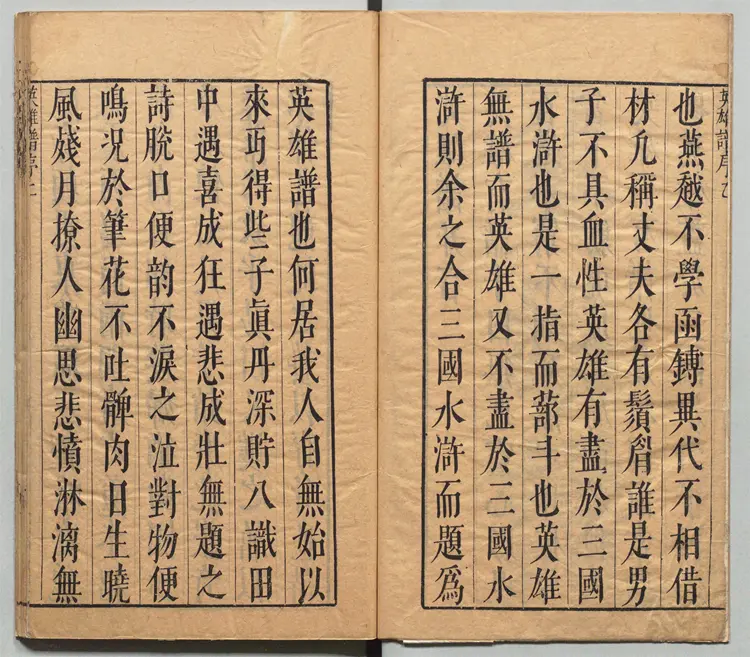 英雄譜序
也燕越不學函鎛異代不相借
材凢稱丈夫各有鬚眉誰是男
子不具血性英雄有盡於三國
水滸也是一指而蔀斗也英雄
無譜而英雄又不盡於三國水
滸則余之合三國水滸而題爲
英雄譜也何居我人自無始以
來丐得些子眞丹深貯八識田
中遇喜成狂遇悲成壯無題之
詩脫口便韵不淚之泣對物便
鳴况於筆花不吐髀肉日生曉
風殘月撩人幽思悲憤淋漓無
英雄譜序二